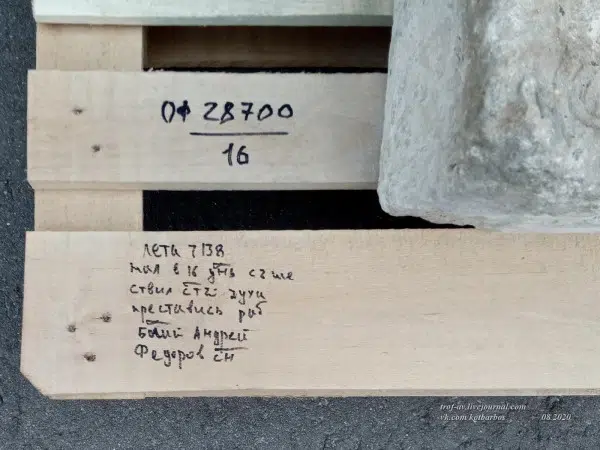 ОФ 28700
16
Лета 7138
мая в 16 днь сше
ствия стг духа
преставись раб
Божий Андрей
Федоров сн
trof-av.livejournal.com
vk.com/kotbarbos
08.2020